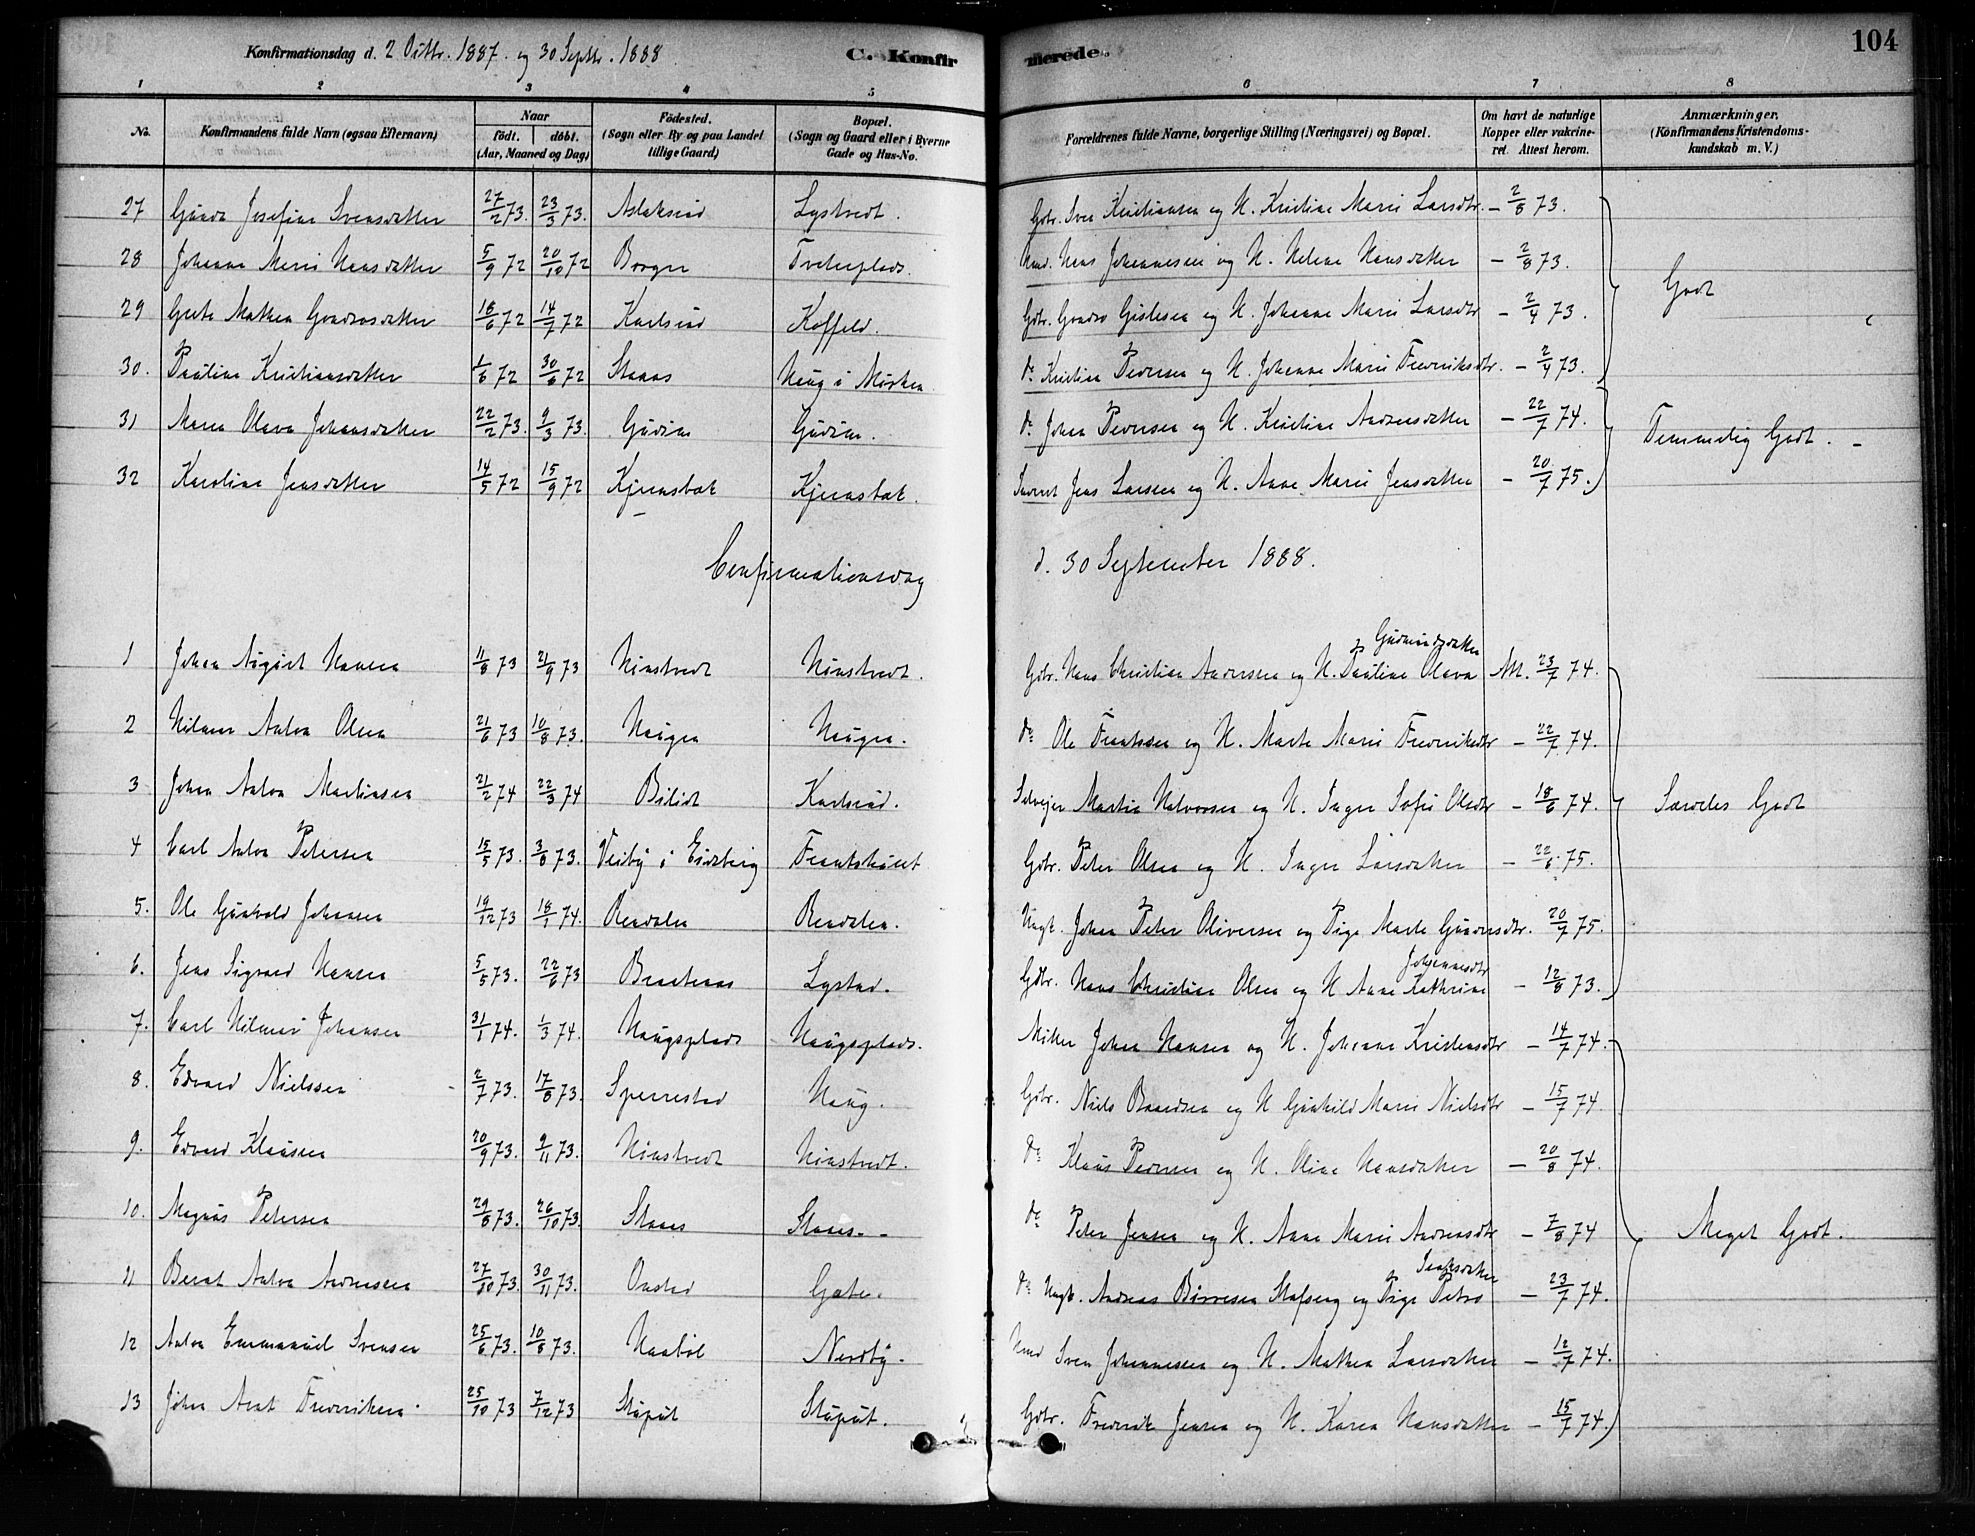 Konfirmationsdag d. 2 Octbr. 1887 og 30 Septbr. 1888
C. Konfirmerede. 104
1 2 3 4 5 6 7 8
No. Konfirmandens fulde Navn (ogsaa Efternavn) Naar født. døbt. (Aar, Maaned og Dag) Fødested. (Sogn eller By og paa Landet tillige Gaard) Bopæl. (Sogn og Gaard eller i Byerne Gade og Hus-No. Forældrenes fulde Navne, borgerlige Stilling (Næringsvei) og Bopæl. Om havt de naturlige Kopper eller vakcineret. Attest herom. Anmærkninger. (Konfirmandens Kristendomskundskab m. V.)
27 Gunda Josefine Svensdatter 27/2 73. 23/3 73. Aslaksrud Lystvedt. Gbr. Sven Kristiansen og H. Kristine Marie Larsdtr. – 2/8 73.
28 Johanne Marie Hansdatter 5/9 72 20/10 72 Borger Tveterplads. Hmd. Hans Johannesen og H. Helene Hansdatter – 2/8 73. Godt
29 Grete Mathea Gundrosdatter 18/6 72 14/7 72 Karlsrud Koffeld. Gbr. Gundro Gislesen og H. Johanne Marie Larsdtr – 2/4 73.
30. Pauline Kristiansdatter 1/6 72 30/6 72 Staaes Haug i Mørken do Kristian Pedersen og H. Johanne Marie Fredriksdtr. – 2/4 73.
31 Maren Olava Johansdatter 22/2 73. 9/3 73. Gudim Gudim. do Johan Pedersen og H. Kristine Andersdatter – 22/7 74. Temmelig Godt. –
32 Karoline Jensdatter 14/5 72 15/9 72 Kjernsbæk Kjernsbæk. Jens Larsen og H. Anne Marie Jensdatter – 20/7 75.
Confirmationsdag d. 30 September 1888.
1 Johan August Hansen 11/8 73 21/9 73 Ninstvedt Ninstvedt. Gbr. Hans Christian Andersen og H. Pauline Olava Gudmundsdatter Att. 23/7 74.
2 Hilmar Anton Olsen 21/6 73 10/8 73. Haugen Haugen. do Ole Frantsen og H. Marte Marie Fredriksdtr – 22/7 74.
3 Johan Anton Martinsen 21/2 74 22/3 74 Bilidt Karlsrud. Selvejer Martin Halvorsen og H. Inger Sofie Olsdtr – 18/6 74. Særdeles Godt
4 Carl Anton Petersen 15/5 73. 3/8 73. Visby i Eidsberg Frantshuset Gbr. Peter Olsen og H. Inger Larsdatter – 22/6 75.
5. Ole Gunhold Johansen 19/12 73 18/1 74. Rendalen Rendalen. Ungk. Johan Peter Oliversen og Pige Marte Gundersdtr. 20/7 75.
6. Jens Sigvard Hansen 5/5 73. 22/6 73 Braatenes Lystad. Gbr. Hans Christian Olsen og H Anne Kathrine Johannesdtr – 12/8 73.
7. Carl Hilmar Johansen 31/1 74. 1/3 74. Haugsplads Haugsplads. Møller Johan Hansen og H. Johanne Kristensdtr – 14/7 74.
8. Edvard Nielssen 2/7 73. 17/8 73. Sperrestad Haug. Gbr. Niels Baardsen og H Gunhild Marie Nielsdtr – 15/7 74.
9. Edvard Klausen 20/9 73. 9/11 73. Ninstvedt Ninstvedt. do Klaus Pedersen og H. Oline Hansdatter – 20/8 74.
10. Magnus Petersen 29/8 73. 26/10 73. Staaes Staaes. – do Peter Jensen og H. Anne Marie Andreasdtr – 7/8 74 Meget Godt.
11 Bernt Anton Andreasen 27/10 73. 30/11 73. Onsted Gate. do Ungk. Andreas Børresen og Pige Petra Isaksdatter – 23/7 74.
12 Anton Emmanuel Svensen 25/6 73. 10/8 73. Haabøl Nordby. Hmd Sven Johannessen og H. Mathea Larsdatter – 12/7 74.
13 Johan Arnt Fredriksen. 25/10 73 7/12 73 Stuput Stuput. Gbr. Fredrik Jensen og H. Karen Hansdatter – 15/7 74.